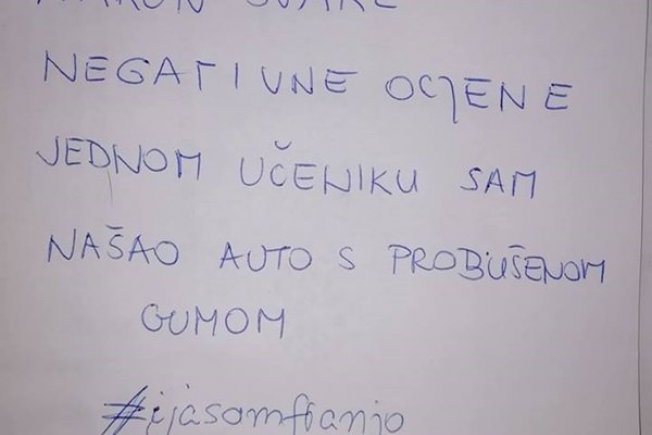 NAKON SVAKE
NEGATIVNE OCJENE
JEDNOM UČENIKU SAM
NAŠAO AUTO S PROBUŠENOM
GUMOM
#ijasamfranjo